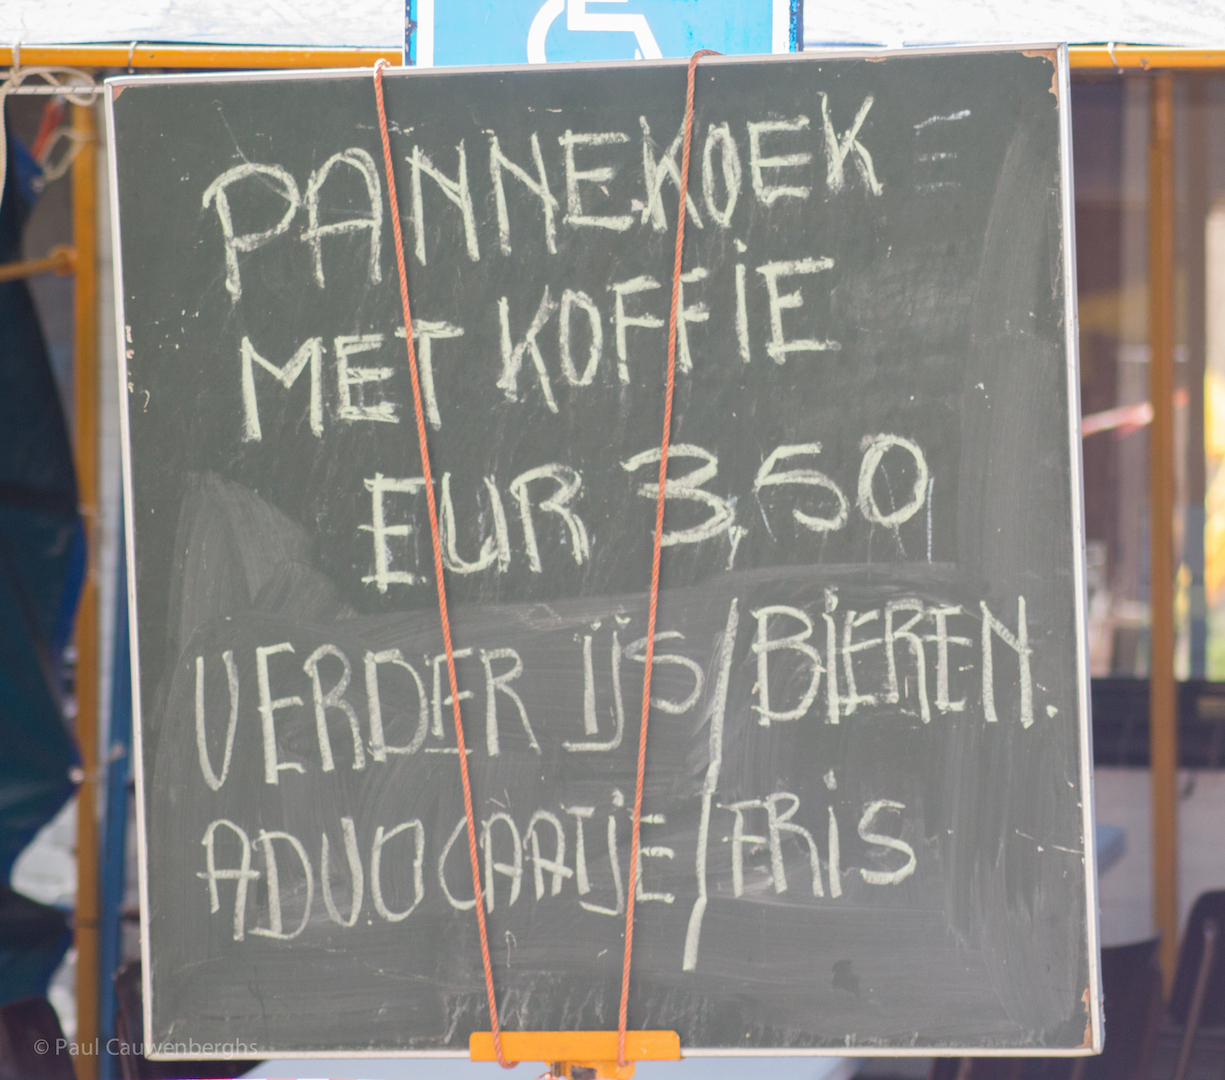 PANNEKOEK
MET KOFFIE
EUR 3,50
VERDER IJS/BIEREN.
ADVOCAATJE/FRIS
© Paul Cauwenberghs